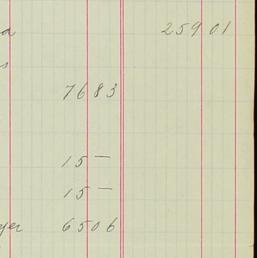 a 259 01
s
76 83
15 —
15 —
yer 65 06